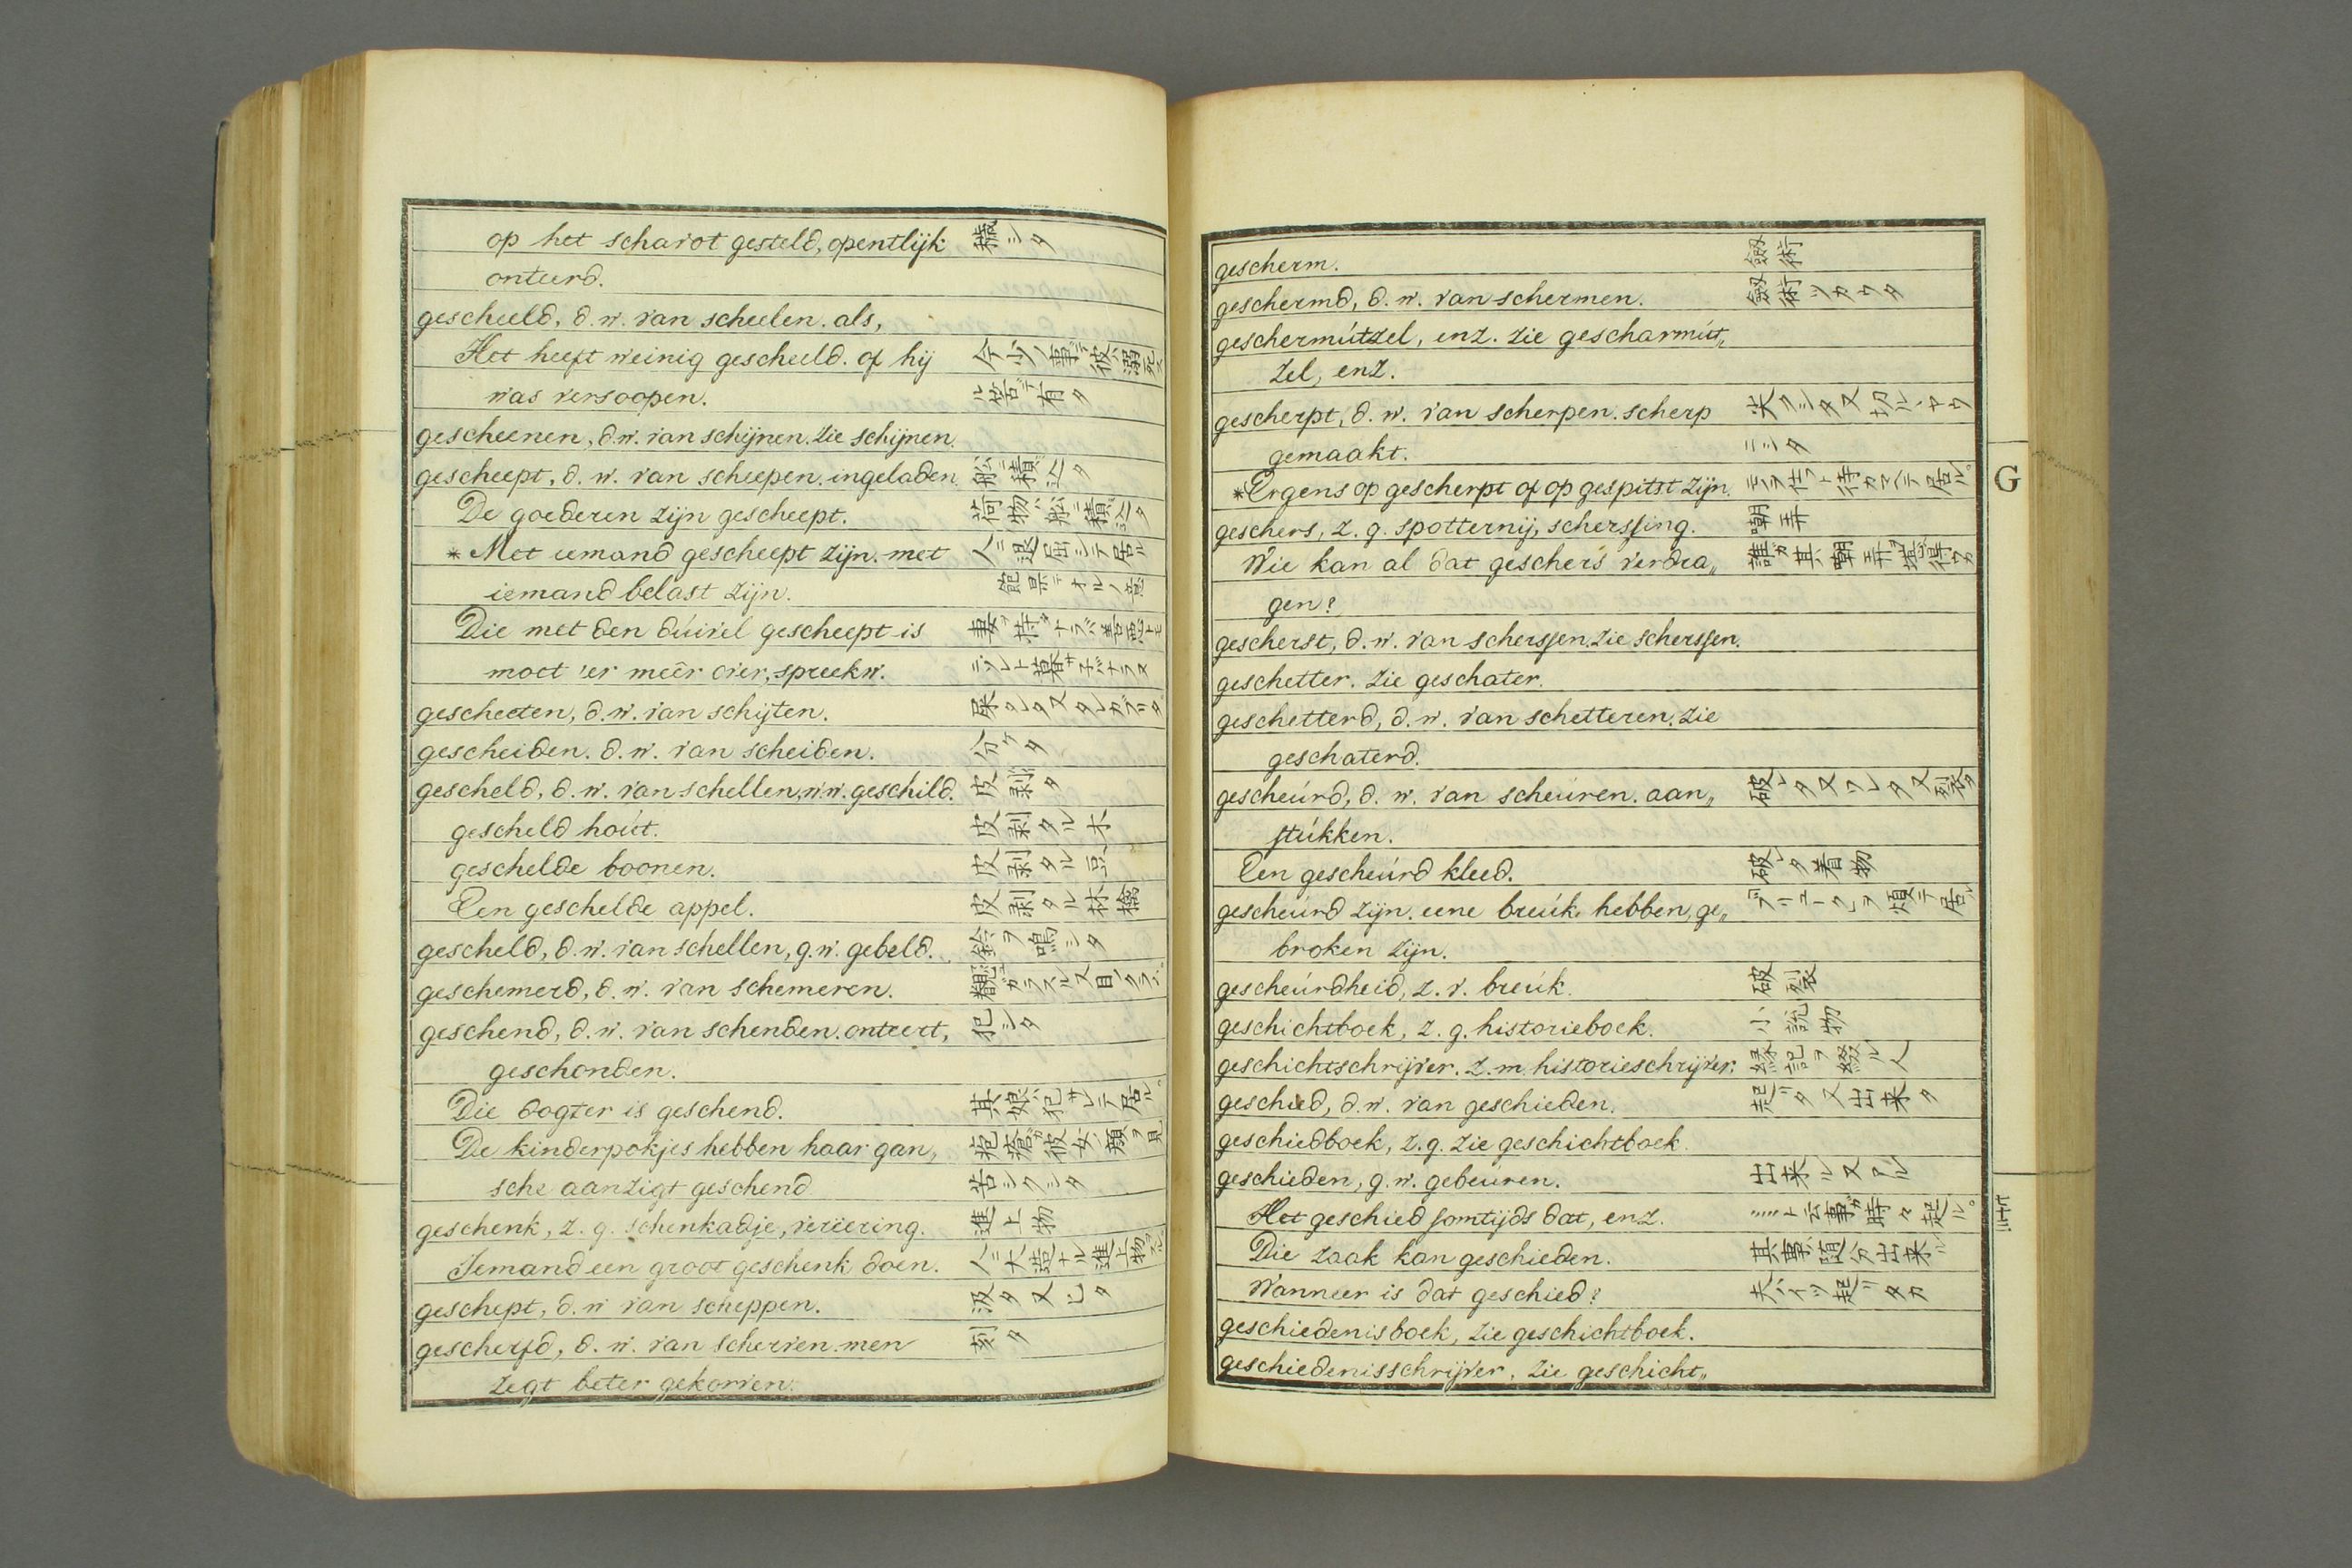 op het schavot gesteld, opentlijk 穢シタ
onteerd.
gescheeld, d.w. van scheelen. als,
Het heeft weinig gescheeld. of hij 今少ノ事デ彼ハ溺死ス
was versoopen. ル筈デ有タ
gescheenen, d.w. van schijnen. zie schijnen.
gescheept, d.w. van scheepen. ingeladen. 舩ニ積込タ
De goederen zijn gescheept. 荷物ハ舩ニ積込タ
* Met iemand gescheept zijn. met 人ニ退屈シテ居ル
iemand belast zijn.
Die met den dúivel gescheept is
moet 'er meêr over, spreekw.
gescheeten, d.w. van schijten.
gescheiden. d.w. van scheiden. 分ケタ
gescheld, d.w. van schellen, w.w. geschild. 皮剥タ
gescheld hoút. 皮剥タル木
geschelde boonen. 皮剥タル豆
Een geschelde appel. 皮剥タル林檎
gescheld, d.w. van schellen, g.w. gebeld. 鈴ヲ鳴シタ
geschemerd, d.w. van schemeren.
geschend, d.w. van schenden. onteert, 犯シタ
geschonden.
Die dogter is geschend. 其娘ハ犯サレテ居ル。
De kinderpokjes hebben haar gan, 疱瘡ガ彼女ノ顔ヲ見
sche aanzigt geschend 苦シクシタ
geschenk, z.g. schenkadje, vereering. 進上物
Iemand een groot geschenk doen. 人ニ大造ナル進上物ヲスル。
geschept, d.w van scheppen. 汲タ又
gescherfd, d.w. van scherven. men 刻タ
zegt beter gekorven.
gescherm. 劔術
geschermd, d.w. van schermen. 劔術ツカウタ
geschermútzel, enz. zie gescharmút„
zel, enz.
gescherpt, d.w. van scherpen. scherp 尖クシタ又切ルヽヤウ
gemaakt. ニシタ
* Ergens op gescherpt of op gespitst zijn.
geschers, z.g. spotternij, scherssing. 嘲弄
Wie kan al dat geschers verdra„ 誰ガ其嘲弄ヲ堪得ウカ
gen?
gescherst, d.w. van scherssen. zie scherssen.
geschetter. zie geschater.
geschetterd, d.w. van schetteren. zie
geschaterd.
gescheúrd, d.w. van scheúren. aan„ 破レタ又ワレタ又裂タ
stúkken.
Een gescheúrd kleed. 破レタ着物
gescheúrd zijn. eene breúk hebben, ge„ ブリユークヲ煩テ居ル
broken zijn.
gescheúrdheid, z.v. breúk. 破裂
geschichtboek, z.g. historieboek. 小說物
geschichtschrijver. z.m. historieschrijver. 緣記ヲ綴ル人
geschied, d.w. van geschieden. 起リタ又出来タ
geschiedboek, z.g. zie geschichtboek.
geschieden, g.w. gebeúren. 出来ル又アル
Het geschied somtijds dat, enz. ト云事ガ時々起ル。
Die zaak kan geschieden. 其事ハ随分出来ル
Wanneer is dat geschied? 夫ハイツ起リタカ
geschiedenisboek, zie geschichtboek.
geschiedenisschrijver, zie geschicht„
G